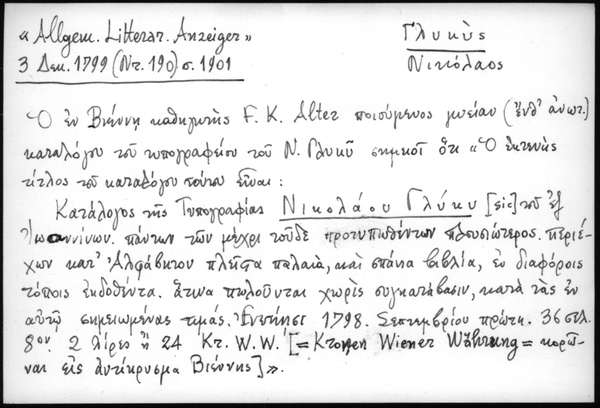 « Allgem. Litterar. Anzeiger»
3 Δεκ. 1799 (Nr. 190) σ. 1901
Γλυκὺς
Νικόλαος
Ὁ ἐν Βιέννῃ καθηγητὴς F. K. Alter ποιούμενος μνείαν (ἔνθ' ἀνωτ.)
καταλόγου τοῦ τυπογραφείου τοῦ Ν. Γλυκῦ σημειοῖ ὅτι « Ὁ ἐκτενὴς
τίτλος τοῦ καταλόγου τούτου εἶναι :
Κατάλογος τῆς Τυπογραφίας Νικολάου Γλύκυ [sic] τοῦ ἐξ
Ἰωαννίνων. πάντων τῶν μέχρι τοῦδε προτυπωθέντων πλουσιώτερος. περιέ-
χων κατ' Ἀλφάβητον πλεῖστα παλαιὰ, καὶ σπάνια βιβλία, ἐν διαφόροις
τόποις ἐκδοθέντα. ἅτινα πωλοῦνται χωρὶς συγκατάβασιν, κατὰ τὰς ἐν
αὐτῷ σημειωμένας τιμάς. Ἐνετίησι 1798. Σεπτεμβρίου πρώτη. 36 σελ.
8ον. 2 λίρες ἢ 24 Kr. W. W. [= Kronen Wiener Währung = κορῶ-
ναι εἰς ἀντίκρυσμα Βιέννης] ».